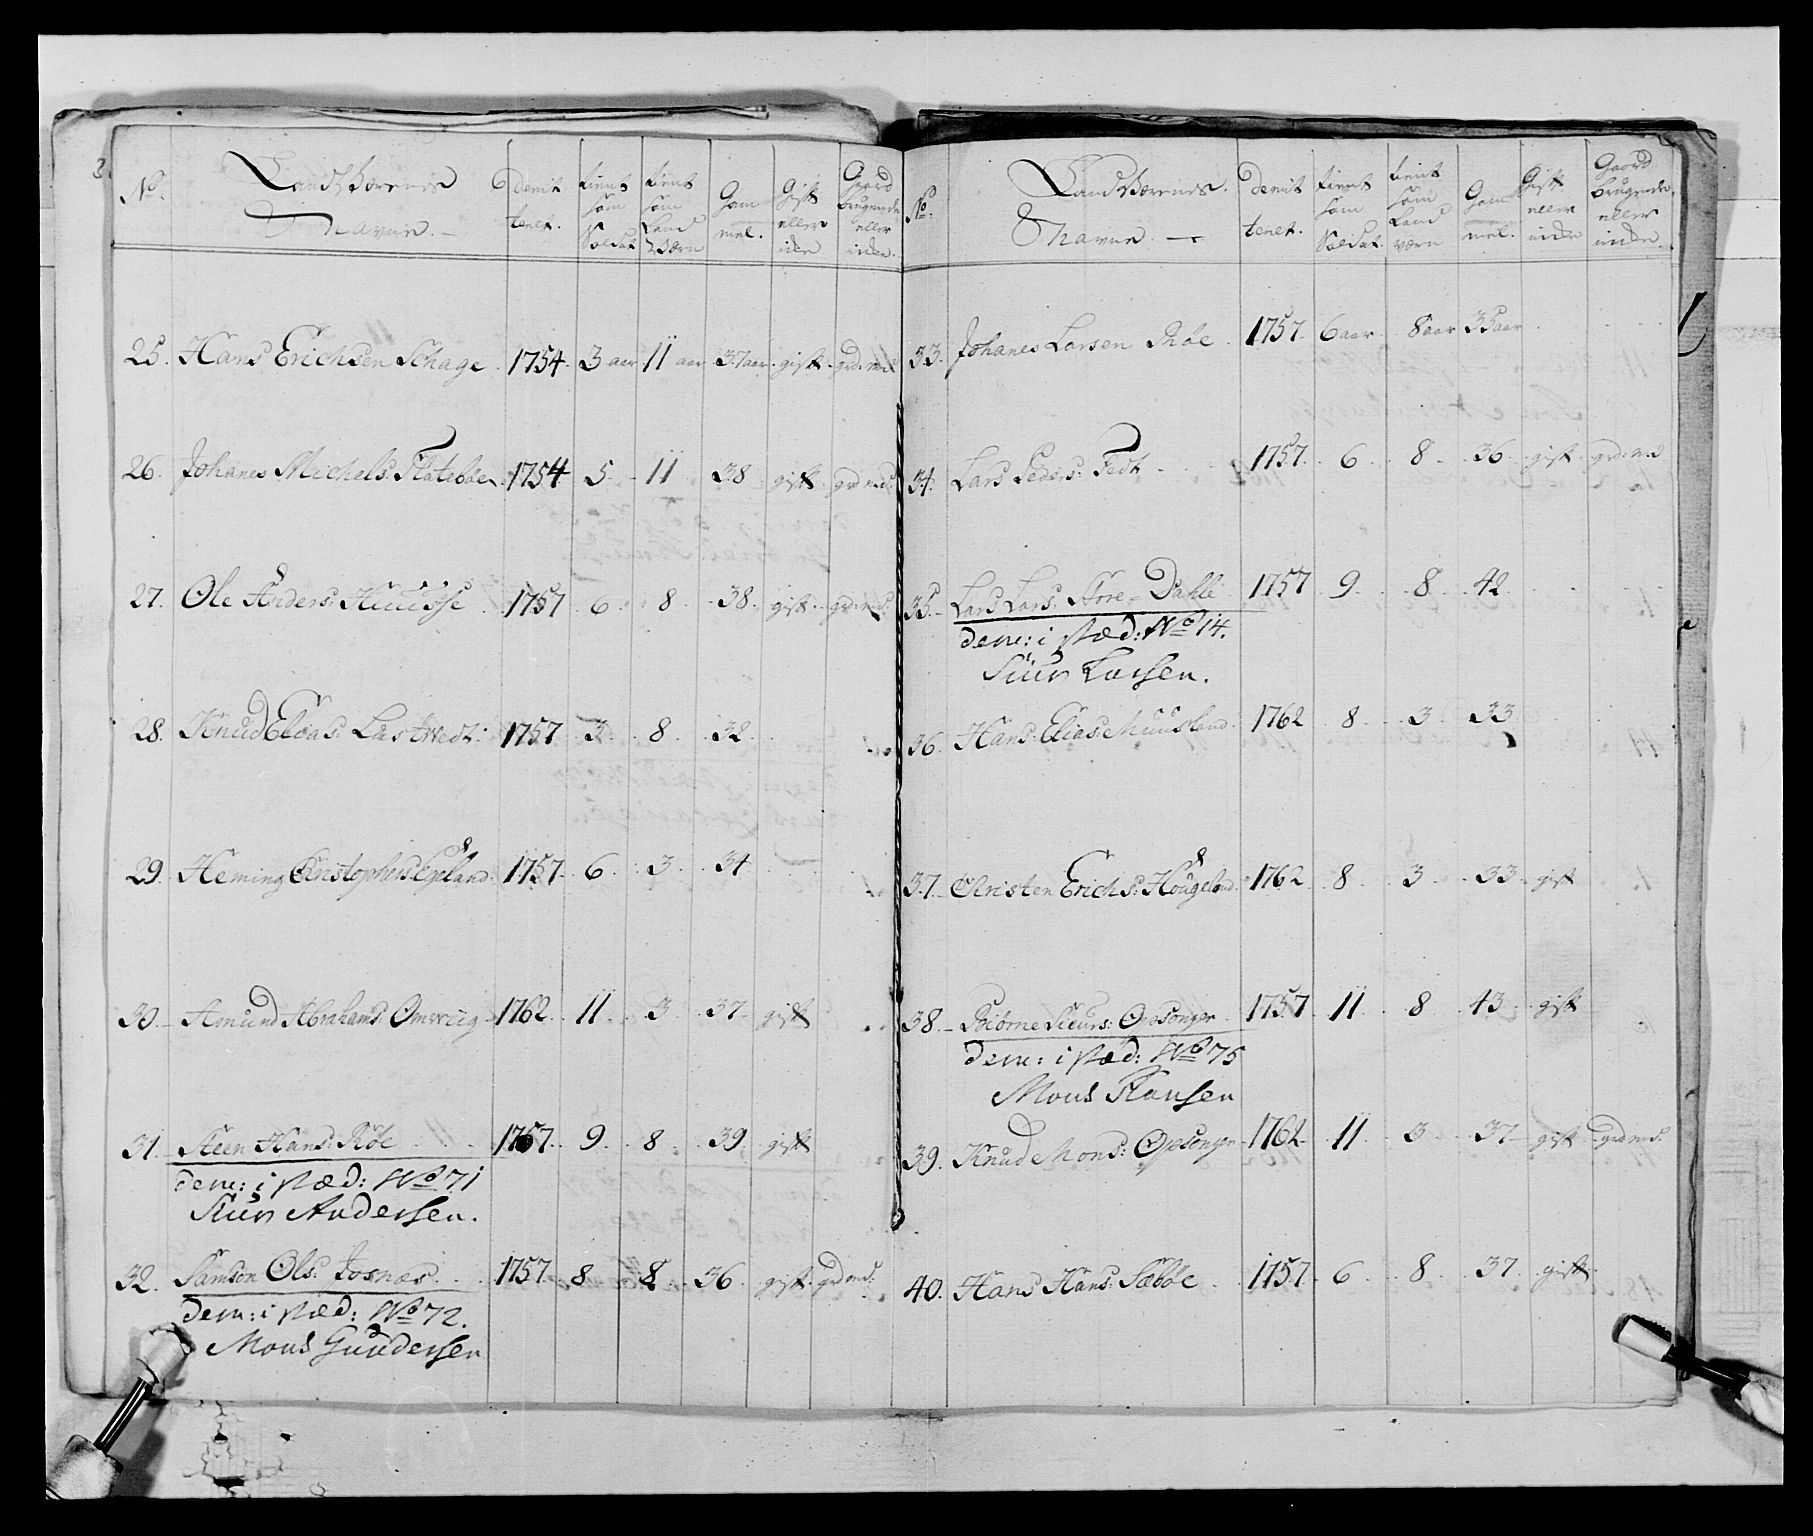 No. Landværnes Navne. Demit tenet. tient som Soldat. tient som LandVærn Gam mel. Gift eller ide Gaard brugende eller inde.
25. Hans Erichsen Schage 1754 3 aar 11 aar 37 aar gift grd: md:
26. Johanes Michels: Flatebøe 1754 5 11 38 gift grd md:
27. Ole Anders: Huusse 1757 6 8 38 gift grd: md:
28. Knud Eloas: Lastwedt: 1757 3 8 32
29. Heming Christophers: Egeland 1757 6 3 34
30. Asmund Abrahams: Omvrug 1762 11 3 37 gift
31. Steen Hans: Røe 1757 9 8 39 gift
dem: i stæd: No 71
Siur Andersen.
32. Samson Ols: Josnæs 1757 8 8 36 gift grd md:
dem: i stæd: No 72.
Mons Gundersen
No: Landværnes Navne. Demit tenet. tient som Soldat. tient som Land værn Gam mel. Gift eller inde Gaard brugende eller inde.
33. Johanes Larsen Røe 1757 6 aar 8 aar 35 aar
34. Lars Peders: Fedt 1757 6 8 36 gift grd: md
35. Lars Lars: Nøre=Dahle 1757 9 8 42
dem: i stæd: No 14.
Siur Larsen.
36. Hans: Elias: Muusland 1762 8 3 33
37. Christen Erichs: Hougeland 1762 8 3 33 gift
38. Biörne Siurs: Opsanger 1757 11 8 43 gift
dem: i stæd: No 75
Mons Hansen
39. Knud Mons: Opsanger 1762 11 3 37 gift grd md:
40. Hans Hans: Sæbøe 1757 6 8 37 gift